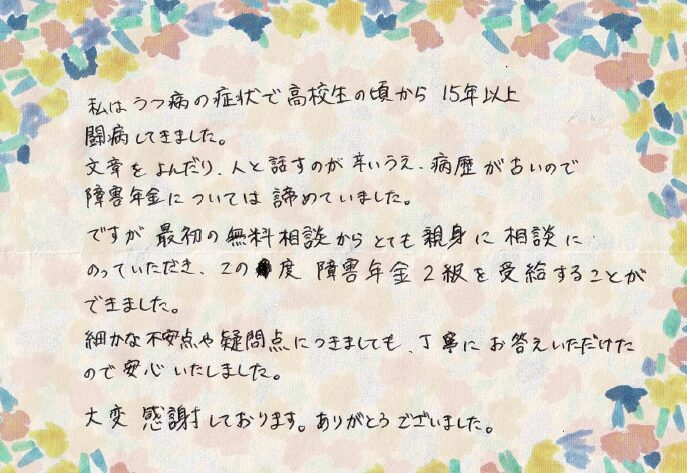 私はうつ病の症状で高校生の頃から 15年以上
闘病してきました。
文章をよんだり、人と話すのが辛いうえ、病歴が古いので
障害年金については諦めていました。
ですが最初の無料相談からとても親身に相談に
のっていただき、この度 障害年金2級を受給することが
できました。
細かな不安点や疑問点につきましても、丁寧にお答えいただけた
ので安心いたしました。
大変感謝しております。ありがとうございました。